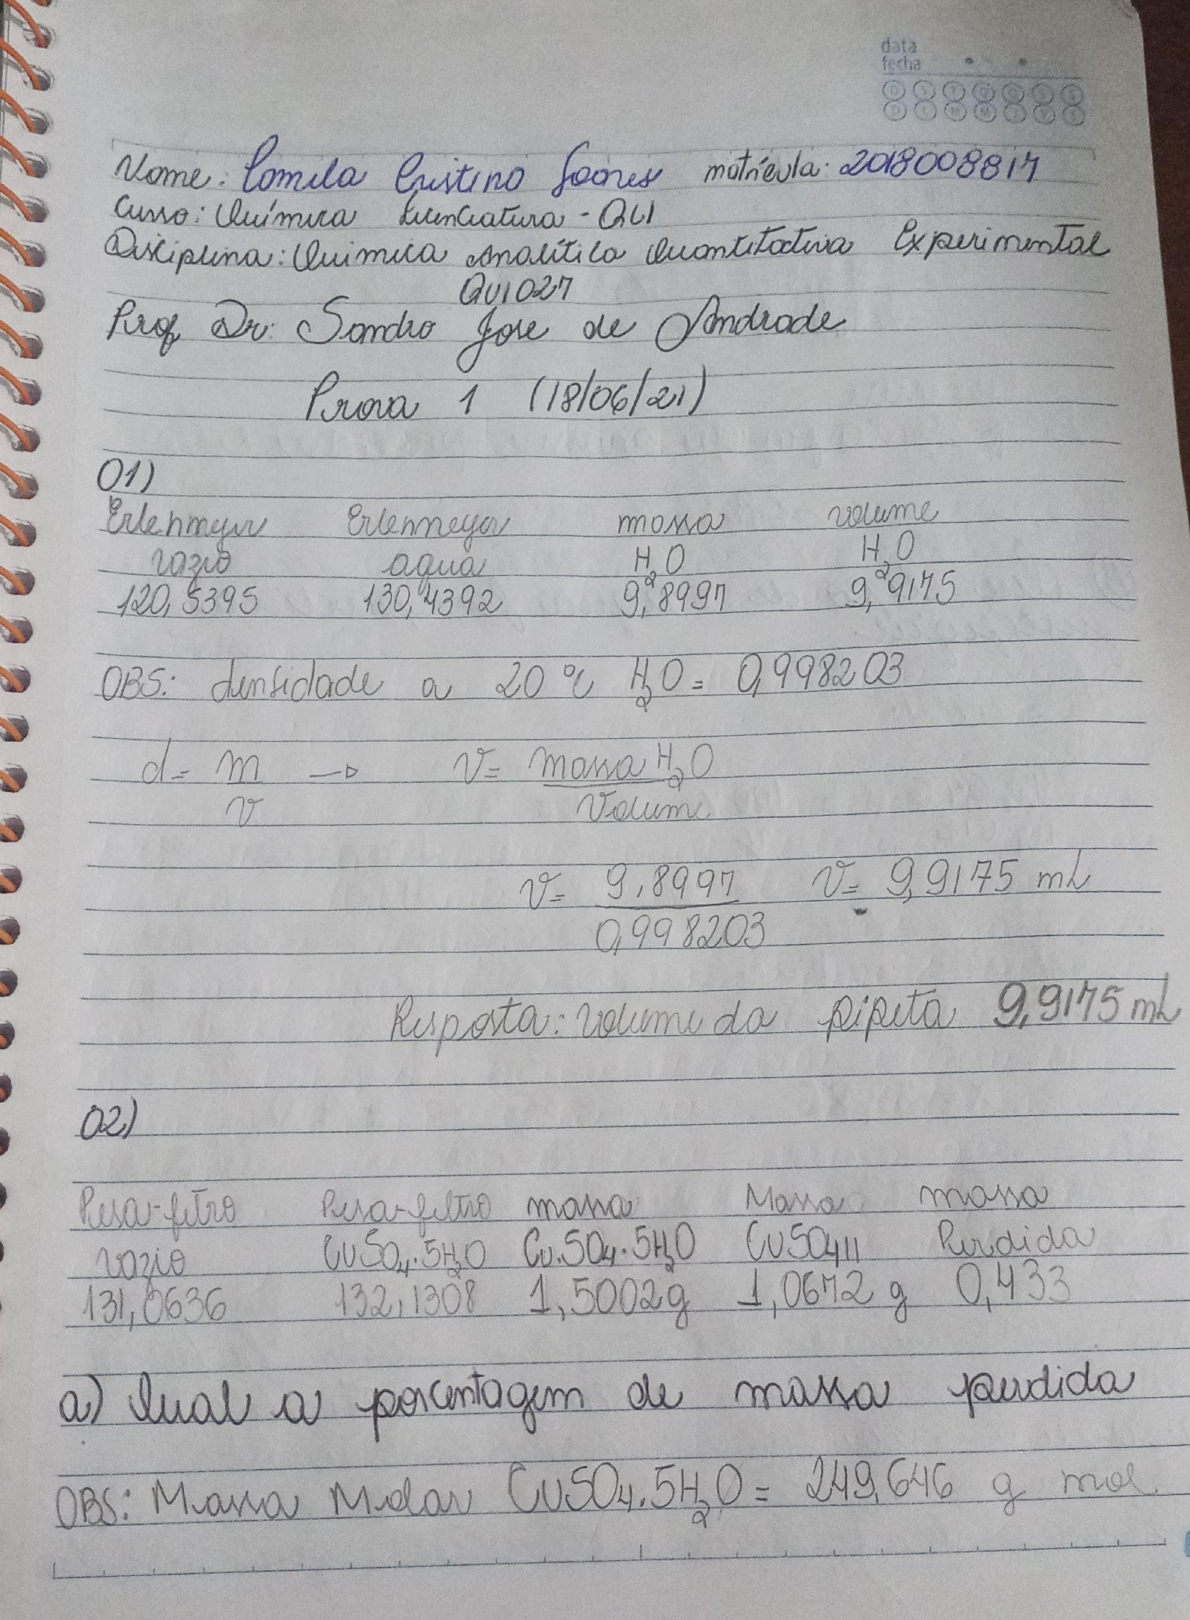 data
fecha
D S T Q Q S S
D L M M J V S
Nome: Comila Cristino Soares matrícula: 2018008817
Curso: Química Licenciatura - QLI
Disciplina: Química Analítica Quantitativa Experimental
QUI027
Prof Dr: Sandro Jose de Andrade
Prova 1 (18/06/21)
01)
Erlenmeyer Erlenmeyer massa volume
vazio agua H2O H2O
120,5395 130,4392 9,8997 9,9175
OBS: densidade a 20 °C H2O = 0,998203
d = m/v → v = massa H2O/Volume
v = 9,8997/0,998203 v = 9,9175 mL
Resposta: volume da pipeta 9,9175 mL
02)
Pesa-filtro Pesa-filtro massa Massa massa
vazio CuSO4.5H2O Cu.SO4.5H2O CuSO4 Perdida
131,0636 132,1308 1,5002g 1,0672 g 0,433
a) Qual a porcentagem de massa perdida
OBS: Massa Molar CuSO4.5H2O = 249,646 g mol